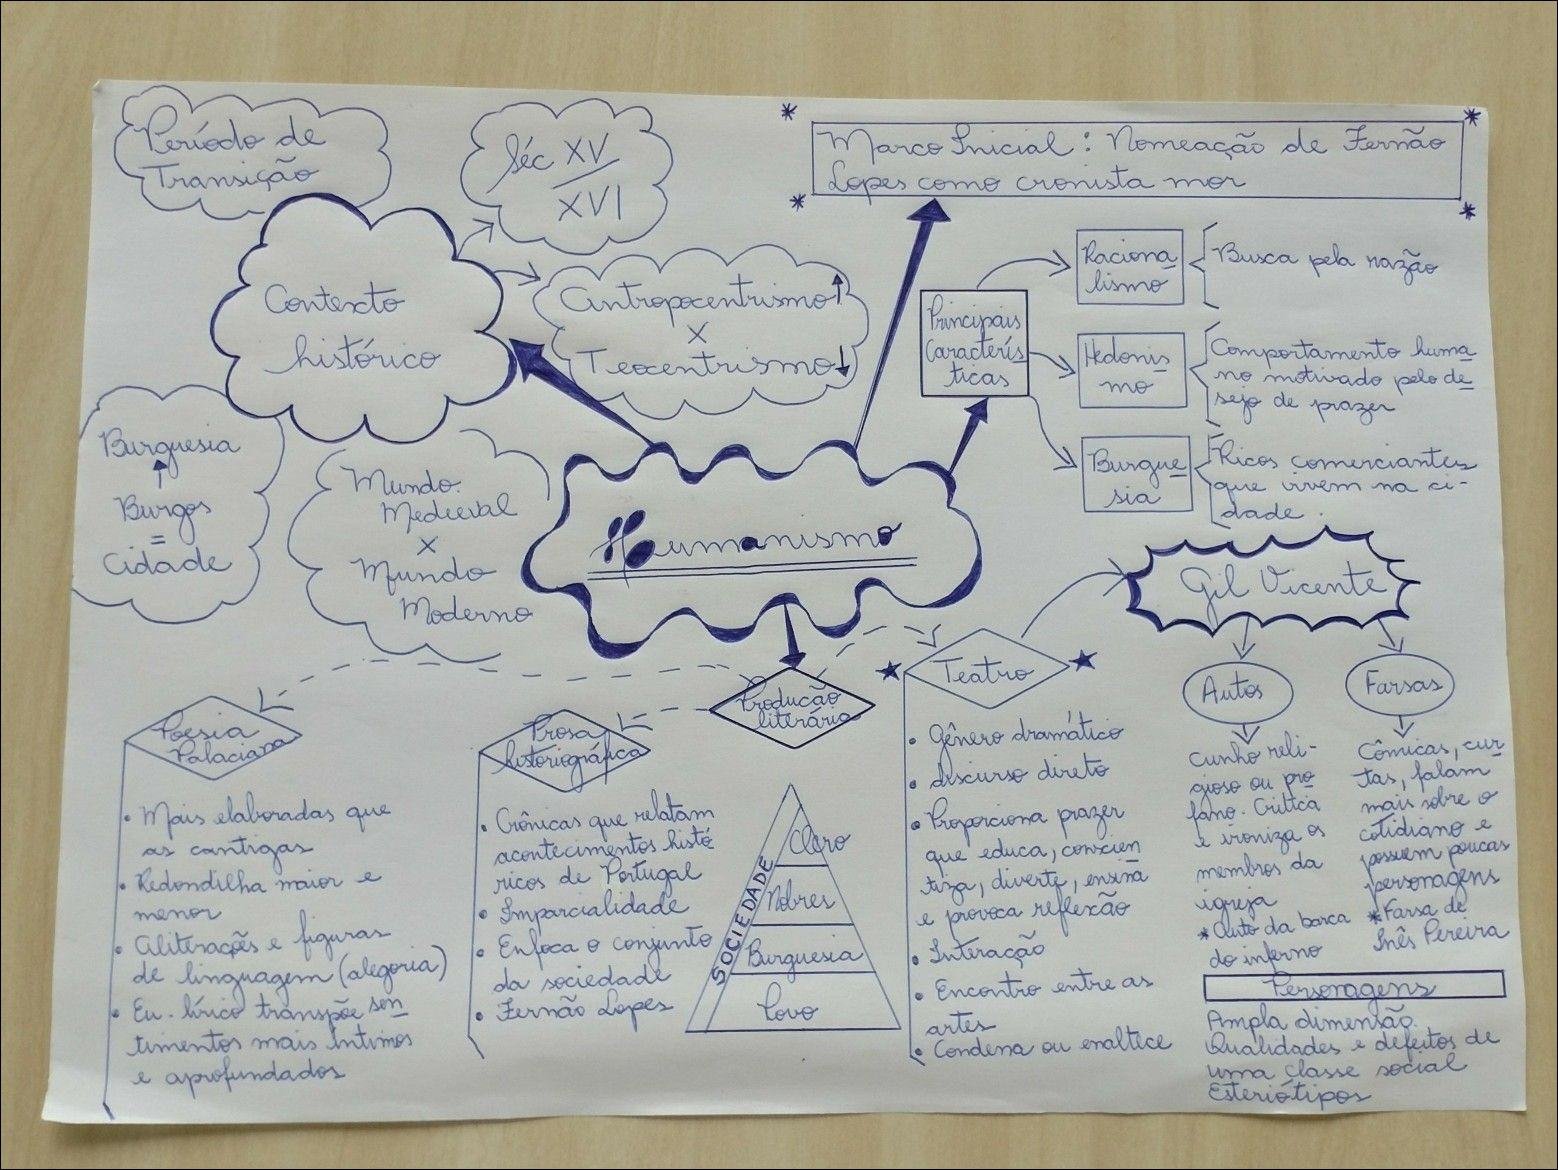 Período de
Transição
Séc XV
XVI
Marco Inicial: Nomeação de Fernão
Lopes como cronista mor
Contexto
histórico
Antropocentrismo ↑
X
Teocentrismo ↓
Burguesia
↑
Burgos
=
Cidade
Mundo
Medieval
X
Mundo
Moderno
Humanismo
Principais
Caracterís
ticas
Raciona
lismo
Busca pela razão
Hedonis
mo
Comportamento huma
no motivado pelo de
sejo de prazer
Burgue
sia
Ricos comerciantes
que vivem na ci-
dade.
Produção
literária
Poesia
Palaciana
• Mais elaboradas que
as cantigas
• Redondilha maior e
menor
• Aliterações e figuras
de linguagem (alegoria)
• Eu-lírico transpõe sen
timentos mais íntimos
e aprofundados
Prosa
historiográfica
• Crônicas que relatam
acontecimentos histó
ricos de Portugal
• Imparcialidade
• Enfoca o conjunto
da sociedade
• Fernão Lopes
SOCIEDADE
Clero
Nobres
Burguesia
Povo
Teatro
• Gênero dramático
• discurso direto
• Proporciona prazer
que educa, conscien
tiza, diverte, ensina
e provoca reflexão
• Interação
• Encontro entre as
artes
• Condena ou enaltece
Gil Vicente
Autos
cunho reli-
gioso ou pro
fano. Critica
e ironiza os
membros da
igreja
* Auto da barca
do inferno
Farsas
Cômicas, cur
tas, falam
mais sobre o
cotidiano e
possuem poucas
personagens
* Farsa de
Inês Pereira
Personagens
Ampla dimensão.
Qualidades e defeitos de
uma classe social
Esteriótipos